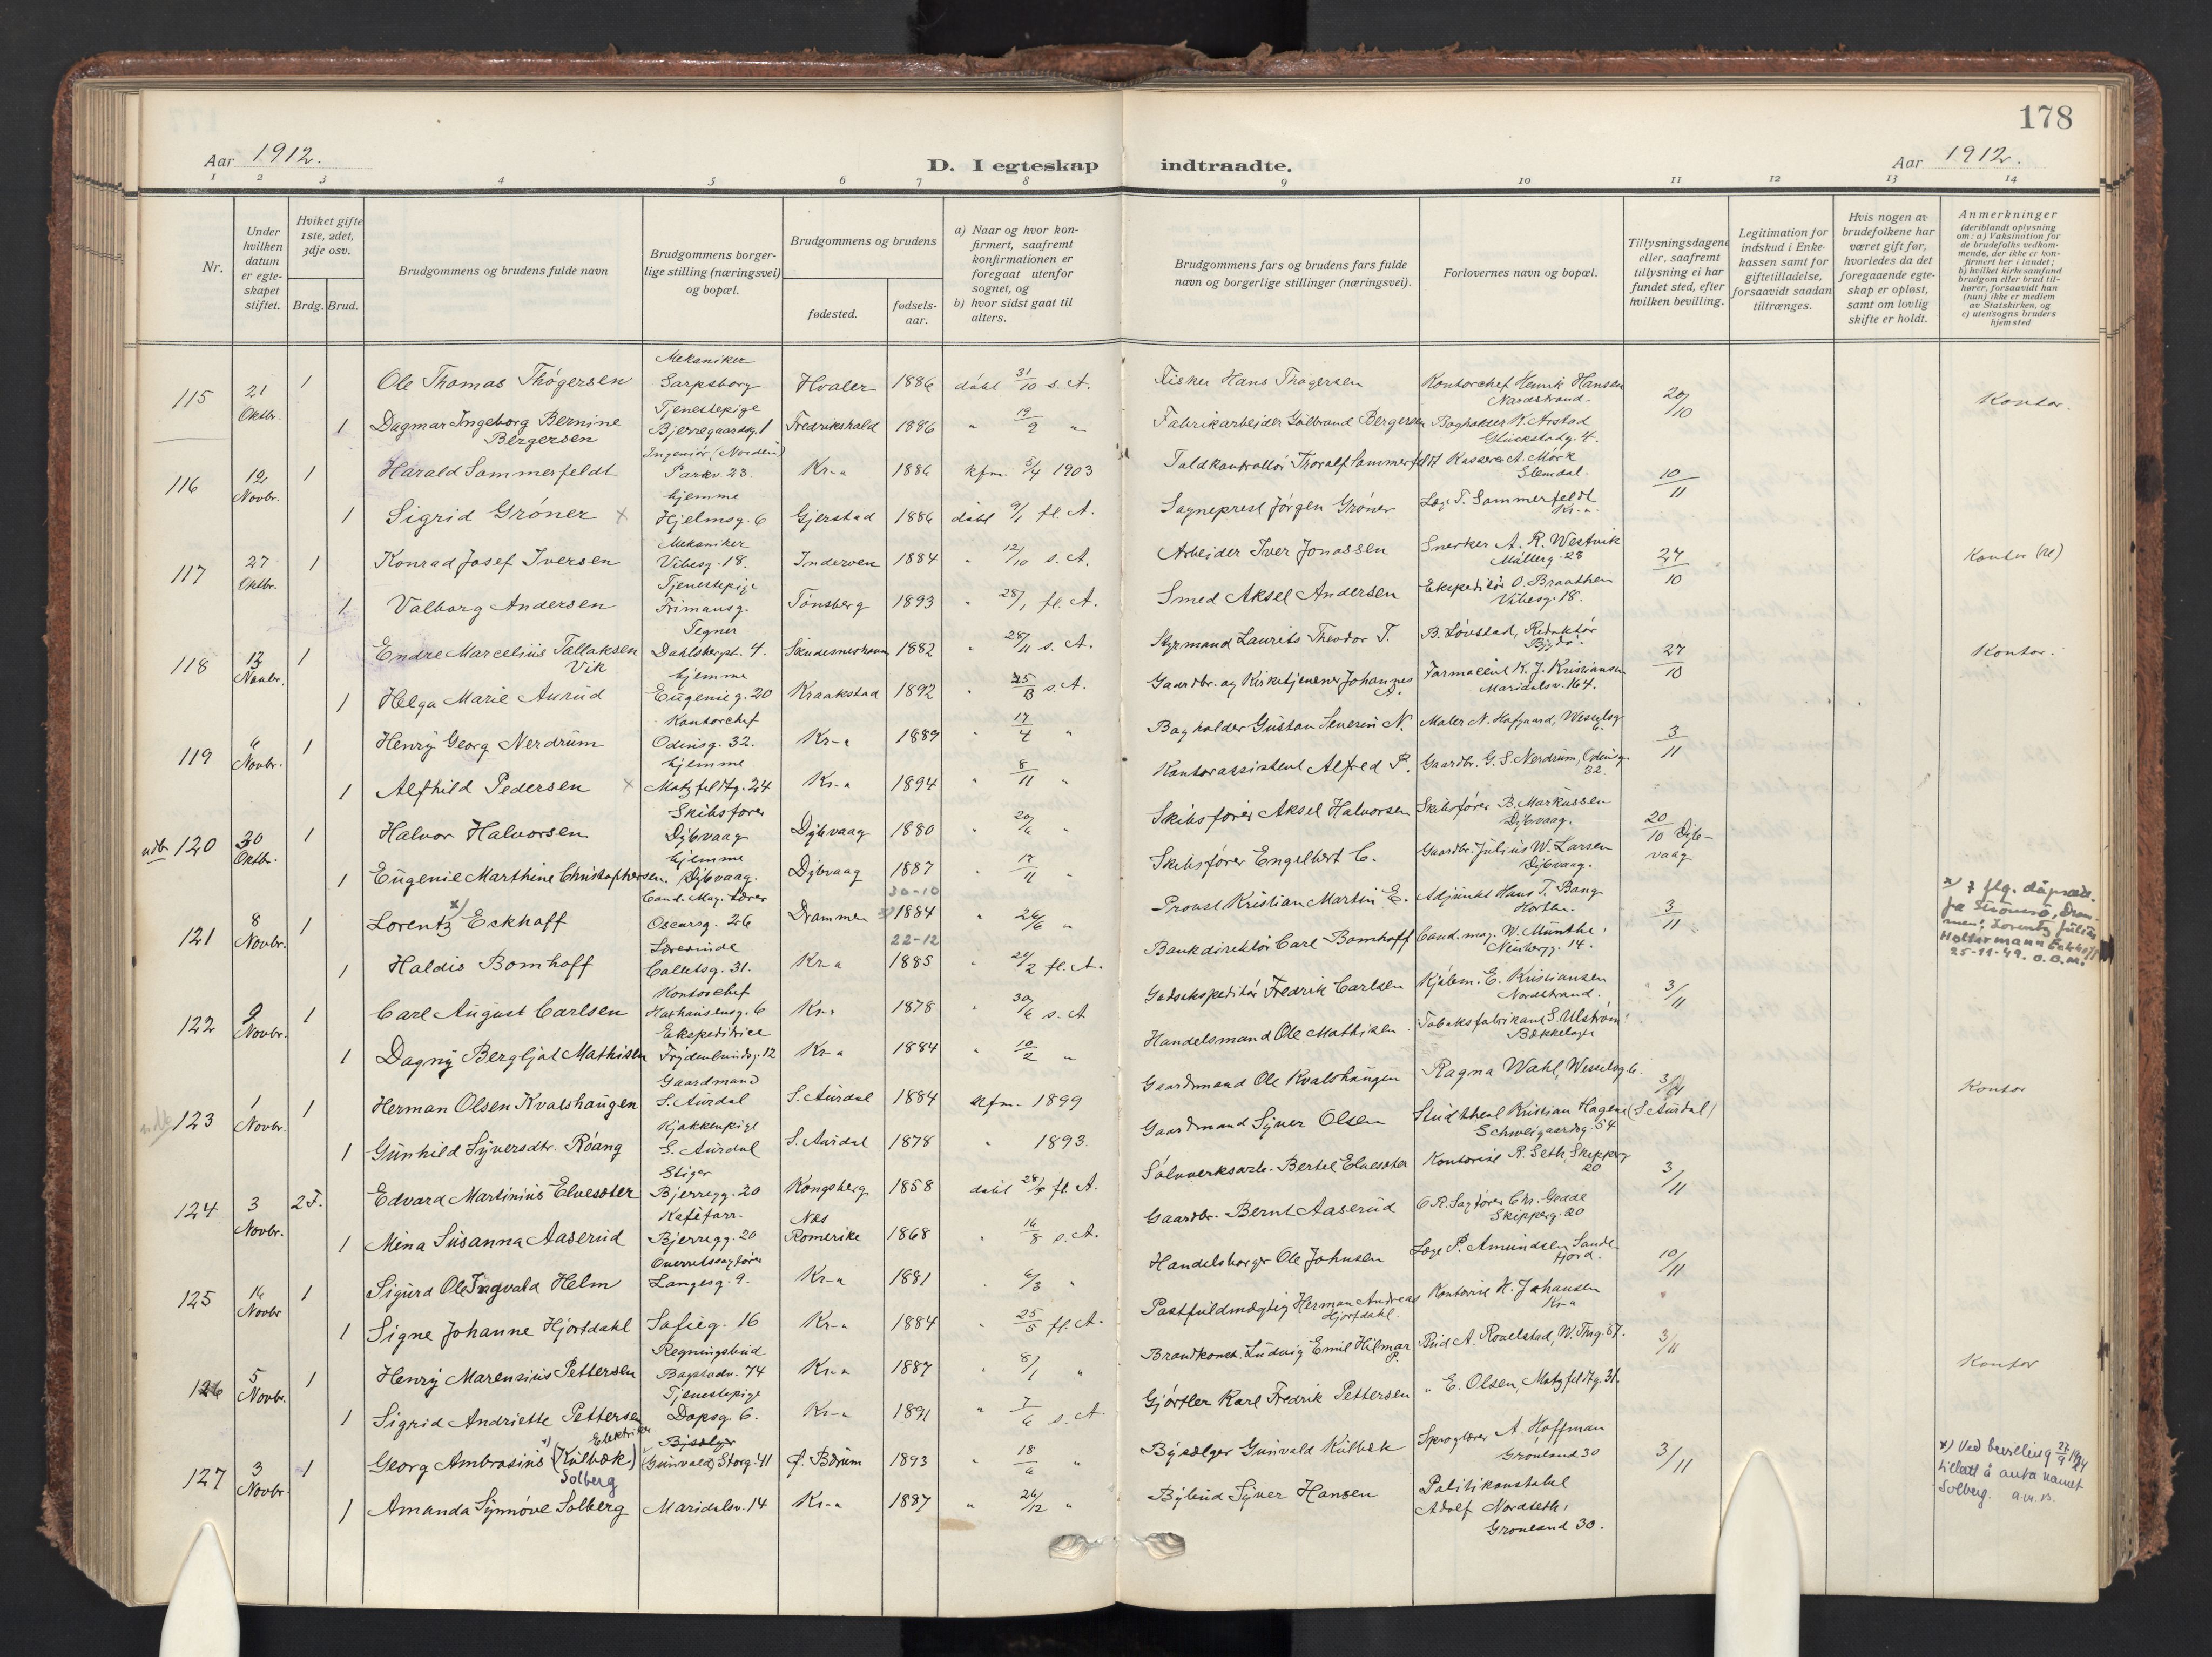 178
Aar 1912.
D. I egteskap indtraadte.
Aar 1912.
1 2 3 4 5 6 7 8 9 10 11 12 13 14
Nr.
Under hvilken datum er egteskapet stiftet.
Hvilket gifte 1ste, 2det, 3dje osv.
Brdg. Brud.
Brudgommens og brudens fulde navn
Brudgommens borgerlige stilling (næringsvei) og bopæl.
Brudgommens og brudens
fødested.
fødselsaar.
a) Naar og hvor konfirmert, saafremt konfirmationen er foregaat utenfor sognet, og
b) hvor sidst gaat til alters.
Brudgommens fars og brudens fars fulde navn og borgerlige stillinger (næringsvei).
Forlovernes navn og bopæl.
Tillysningsdagene eller, saafremt tillysning ei har fundet sted, efter hvilken bevilling.
Legitimation for indskud i Enkekassen samt for giftetilladelse, forsaavidt saadan tiltrænges.
Hvis nogen av brudefolkene har været gift før, hvorledes da det foregaaende egteskap er opløst, samt om lovlig skifte er holdt.
Anmerkninger (deriblandt oplysning om: a) Vaksination for de brudefolks vedkommende, der ikke er konfirmert her i landet; b) hvilket kirkesamfund brudgom eller brud tilhører, forsaavidt han (hun) ikke er medlem av Statskirken, og c) utensogns bruders hjemsted
115 21 Oktbr. 1 Ole Thomas Thøgersen Mekaniker Sarpsborg Hvaler 1886 døbt 31/10 s. A. Fisker Hans Thøgersen Kontorchef Henrik Hansen Nordstrand. 20/10 Kontor.
1 Dagmar Ingeborg Bernine Bergersen Tjenestepige Bjerregaardsg. 1 Fredrikshald 1886 " 19/2 " Fabrikarbeider Gulbrand Bergersen Bogholder K. Arstad Glückstadg. 4.
116 12 Novbr. 1 Harald Sommerfeldt Ingeniør (Norden) Parkv. 23. Kr-a 1886 kfm. 5/4 1903 Toldkontrollør Thoralf Sommerfeldt Kasserer A. Mørk Slemdal. 10/11
1 Sigrid Grøner x hjemme Hjelmsg. 6 Gjerstad 1886 døbt 9/1 fl. A. Sogneprest Jørgen Grøner Læge T. Sommerfeldt Kr-a.
117 27 Oktbr. 1 Konrad Josef Iversen Mekaniker Vibesg. 18. Inderøen 1884 " 12/10 s. A. Arbeider Iver Jonassen Snekker A. R. Westvik Møllerg. 28 27/10 Kontor
1 Valborg Andersen Tjenestepige Frimansg. Tønsberg 1893 " 28/1 fl. A. Smed Aksel Andersen Ekspeditør O. Braathen Vibesg. 18.
118 13 Novbr. 1 Endre Marcelius Tallaksen Vik Tegner Dahlsbergst. 4. Skudesneshavn 1882 " 28/11 s. A. Styrmand Laurits Theodor T. B. Løvstad, Redaktør Bygdø. 27/10 Kontor.
1 Helga Marie Aurud hjemme Eugenieg. 20 Kraakstad 1892 " 25/ s. A. Gaardbr. og Kirketjener Johannes A. Farmaceut K. J. Kristiansen Maridalsv. 164.
119 6 Novbr. 1 Henry Georg Nerdrum Kontorchef Odinsg. 32. Kr-a 1889 " 17/4 " Bogholder Gustav Severin N. Maler N. Hofgaard, Wesselsg. 6. 3/11
1 Alfhild Pedersen x hjemme Motzfeldtg. 24 Kr-a 1894 " 8/11 " Kontorassistent Alfred P. Gaardbr. G. S. Nerdrum, Odinsg. 32.
udb 120 30 Oktbr. 1 Halvor Halvorsen Skibsfører Dybvaag Dybvaag 1880 " 20/6 " Skibsfører Aksel Halvorsen Skibsfører B. Markussen Dybvaag. 20/10 Dybvaag
1 Eugenie Marthine Christophersen. hjemme Dybvaag. Dybvaag 1887 " 17/4 " Skibsfører Engelbert C. Gaardbr. Julius W. Larsen Dybvaag.
121 8 Novbr. 1 Lorentz x) Eckhoff Cand. Mag. Lærer Oscarsg. 26 Drammen 30-10 1884 " 26/6 " Provst Kristian Martin E. Adjunkt Hans T. Bang Horten. 3/11 x) flg. dåpsatt. fra Strømsø, Drammen: Lorentz Julius Holtermann Eckhoff 25-11-49. O.B.M.
1 Haldis Bomhoff Lærerinde Colletsg. 31. Kr-a 22-12 1885 " 24/2 fl. A. Bankdirektør Carl Bomhoff Cand. mag. W. Munthe, Neubergg. 14.
122 9 Novbr. 1 Carl August Carlsen Kontorchef Haxhausensg. 6 Kr-a 1878 " 30/6 s. A Godsekspeditør Fredrik Carlsen Kjøbm. E. Kristiansen Nordstrand. 3/11
1 Dagny Bergljot Mathisen Ekspeditrice Frydenlundsg. 12 Kr-a 1884 " 10/2 " Handelsmand Ole Mathisen Tobaksfabrikant S. Ulstrøm Bækkelaget
123 1 Novbr. 1 Herman Olsen Kvalshaugen Gaardmand S. Aurdal S. Aurdal 1884 kfm. 1899 Gaardmand Ole Kvalshaugen Ragna Wahl, Wesselsg. 6. 3/11 (S. Aurdal) Kontor
1 Gunhild Syversdtr. Røang Kjøkkenpige S. Aurdal S. Aurdal 1878 " 1893. Gaardmand Syver Olsen Stud. theol Kristian Hagene Schweigaardsg. 54
124 3 Novbr. 2 F. Edvard Martinius Elvesæter Stiger Bjerregg. 20 Kongsberg 1858 døbt 28/5 fl. A. Sølvverksarb. Bertel Elvesæter Kontorist R. Seth, Skipperg. 20 3/11
1 Mina Susanna Aaserud Kaféforr. Bjerregg. 20 Næs Romerike 1868 " 16/8 s. A. Gaardbr. Bernt Aaserud O. R. Sagfører Chr. Gedde Skipperg. 20
125 16 Novbr 1 Sigurd Ole Ingvald Helm Overretssagfører Langesg. 9. Kr-a 1881 " 6/3 " Handelsborger Ole Johnsen Læge P. Amundsen Sandefjord. 10/11
1 Signe Johanne Hjortdahl Sofieg. 16 Kr-a 1884 " 25/5 fl. A. Postfuldmægtig Herman Andreas Hjortdahl. Kontorist H. Johansen Kr-a
126 5 Novbr. 1 Henry Marensius Pettersen Regningsbud Bogstadv. 74 Kr-a 1887 " 8/1 " Brandkonst. Ludvig Emil Hilmar P. Bud A. Rovelstad, W. Thrg. 57. 3/11 Kontor
1 Sigrid Andriette Pettersen Tjenestepige Dopsg. 6. Kr-a 1891 " 7/6 s. A. Gjørtler Karl Fredrik Pettersen " E. Olsen, Motzfeldtg. 31.
127 3 Novbr. 1 Georg Ambrosius x) (Kulbæk) Solberg Elektriker Bysælger (Gunvald) Storg. 41 Ø. Bærum 1893 " 18/6 " Bysælger Gunvald Kulbæk Sproglærer A. Hoffman Grønland 30 3/11 x) Ved bevilling 27/9 1924 tillatt å anta navnet Solberg. a.m.B.
1 Amanda Synnøve Solberg Maridalsv. 14 Kr-a 1887 " 26/12 " Bybud Syver Hansen Politikonstabel Adolf Nordseth, Grønland 30.